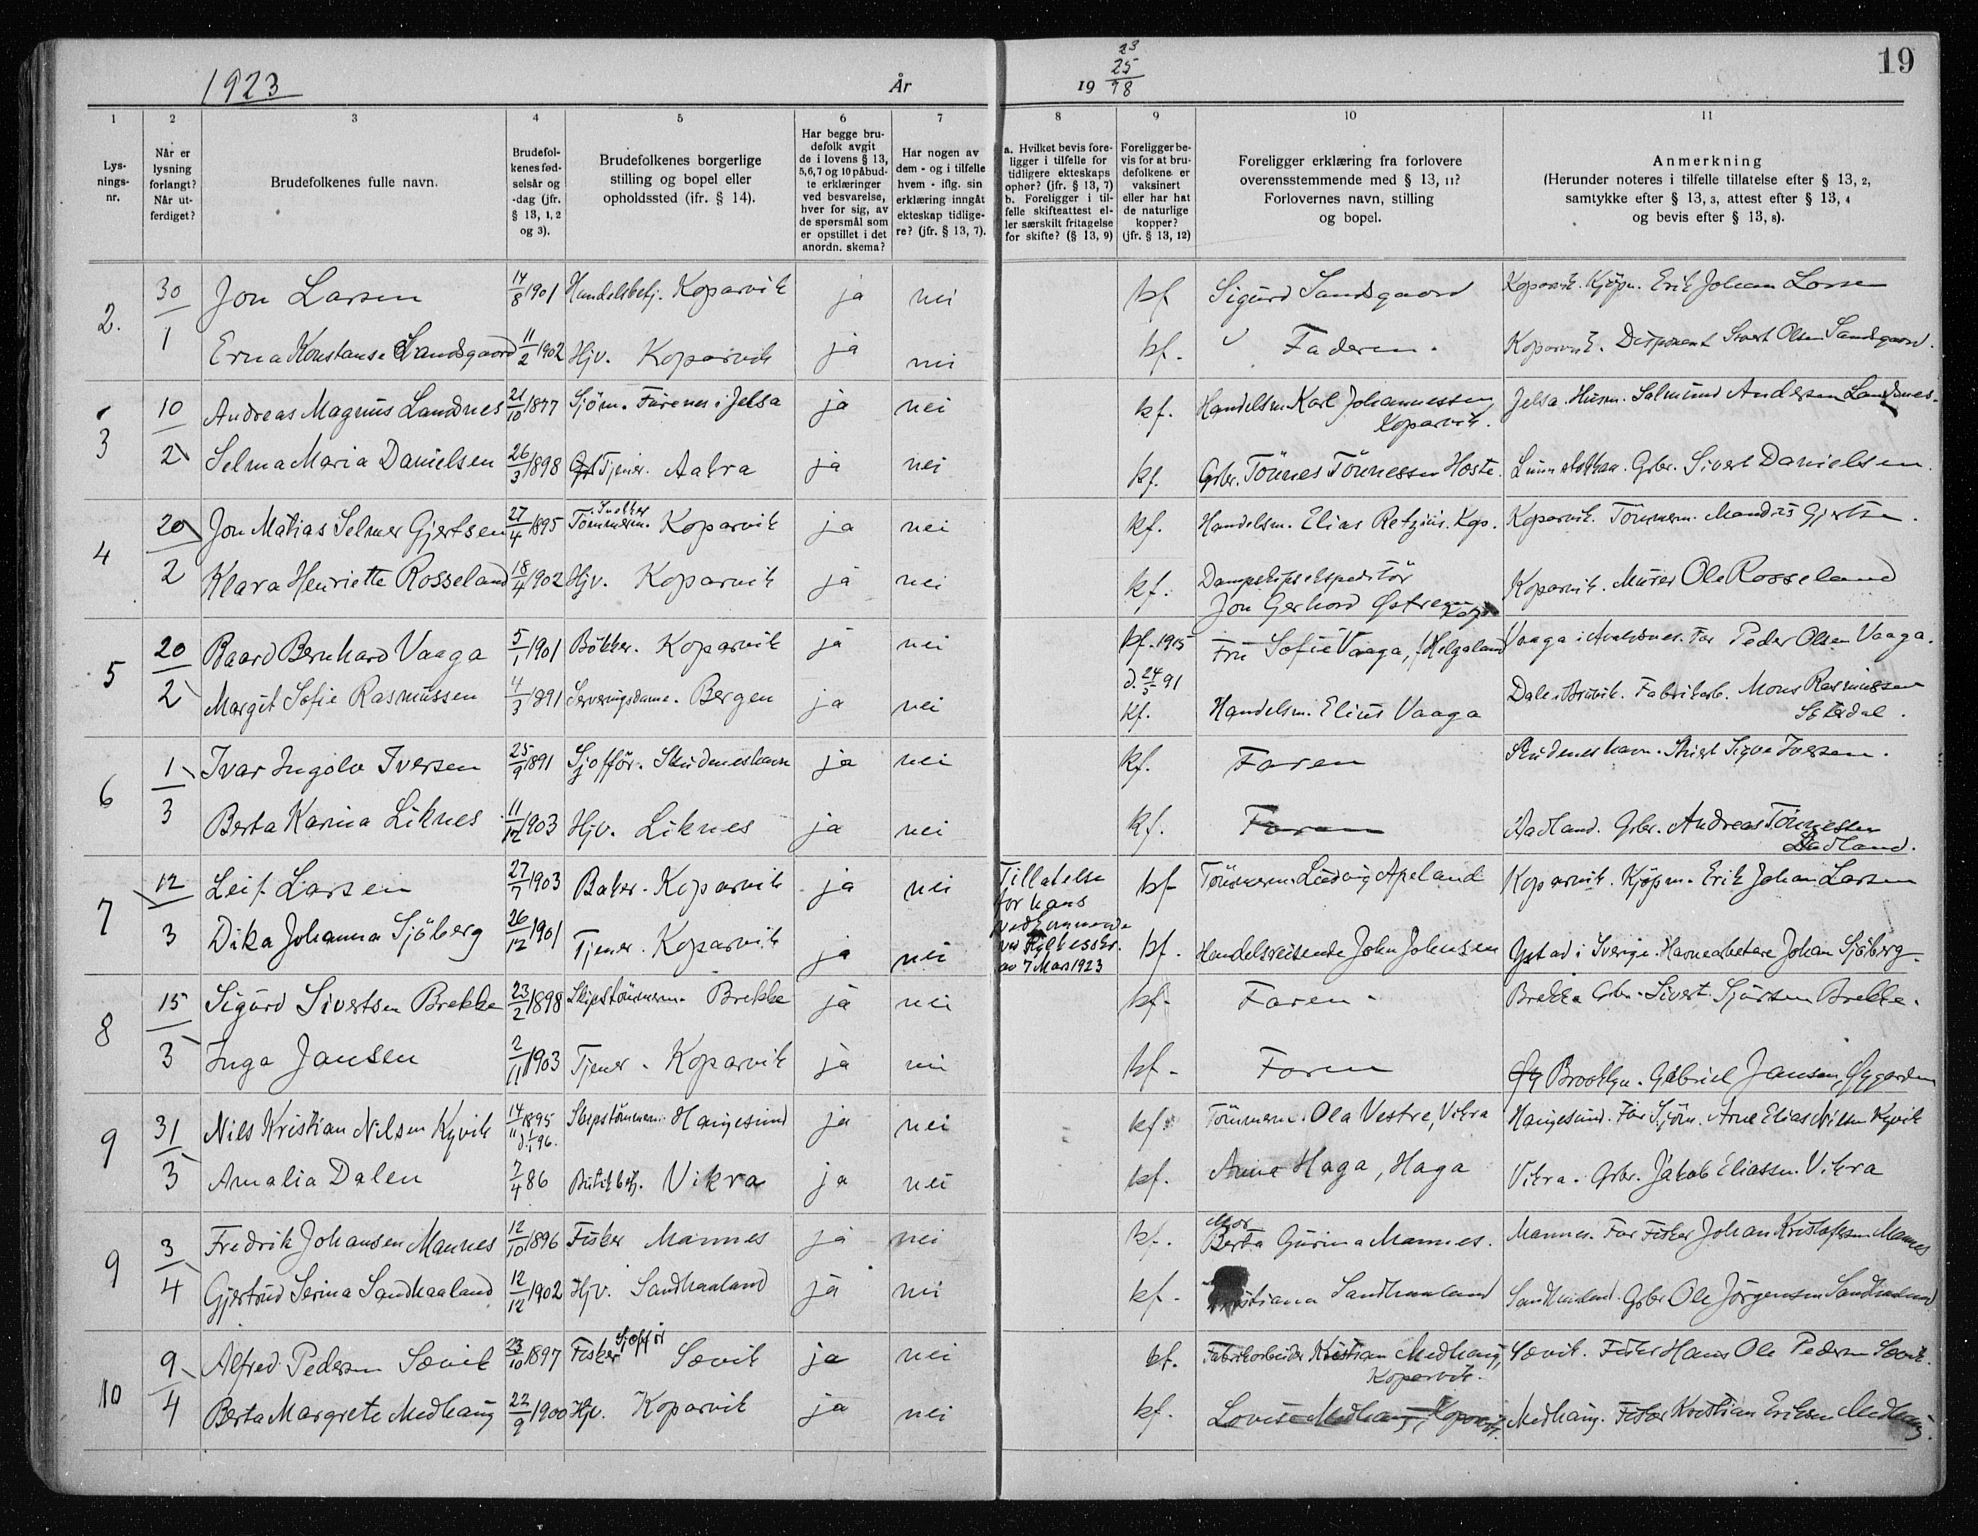 1923 År 19 23
25
98
19
1 2 3 4 5 6 7 8 9 10 11
Lys-
nings-
nr.
Når er
lysning
forlangt?
Når ut-
ferdiget?
Brudefolkenes fulle navn.
Brudefol-
kenes fød-
selsår og
-dag (jfr.
§ 13, 1, 2
og 3).
Brudefolkenes borgerlige
stilling og bopel eller
opholdssted (ifr. § 14).
Har begge bru-
defolk avgit
de i lovens § 13,
5,6,7 og 10 påbud-
te erklæringer
ved besvarelse,
hver for sig, av
de spørsmål som
er opstillet i det
anordn. skema?
Har nogen av
dem - og i tilfelle
hvem - iflg. sin
erklæring inngåt
ekteskap tidlige-
re? (jfr. § 13, 7).
a. Hvilket bevis fore-
ligger i tilfelle for
tidligere ekteskaps
ophør? (jfr. § 13, 7)
b. Foreligger i til-
felle skifteattest el-
ler særskilt fritagelse
for skifte? (§ 13, 9)
Foreligger be-
vis for at bru-
defolkene er
vaksinert
eller har hat
de naturlige
kopper?
(jfr. § 13, 12)
Foreligger erklæring fra forlovere
overensstemmende med § 13, 11?
Forlovernes navn, stilling
og bopel.
Anmerkning
(Herunder noteres i tilfelle tillatelse efter § 13, 2,
samtykke efter § 13, 3, attest efter § 13, 4
og bevis efter § 13, 8).
2. 30/1 Jon Larsen 14/8 1901 Handelsbetj. Koparvik ja nei kf Sigurd Sandsgaard Koparvik. Kjøpm. Erik Johan Larsen
Erna Konstanse Sandsgaard 11/2 1902 Hjv. Koparvik ja nei kf. Faderen. Koparvik. Disponent Sivert Olsen Sandsgaard.
3 10/2 Andreas Magnus Landsnes 21/10 1877 Sjöm. Furenes i Jelsa ja nei kf. Handelsm. Karl Johannessen Jelsa. Husm. Salmund Andersen Landsnes.
Koparvik.
Selma Maria Danielsen 26/3 1898 Tjener. Aakra ja nei kf. Grbr. Tönnes Tönnessen Hoste. Grbr. Sivert Danielsen.
4 20/2 Jon Matias Selmer Gjertsen 27/4 1895 Tömmerm. Koparvik ja nei kf. Handelsm. Elias Retzius. Kop. Koparvik. Tömmerm. Mandus Gjertsen.
Klara Henriette Rosseland 18/4 1902 Hjv. Koparvik ja nei kf. Dampskipsekspeditör Koparvik. Murer Ole Rosseland
Jon Gerhard Østrem
5 20/2 Baard Bernhard Vaaga 5/1 1901 Bökker. Koparvik ja nei kf. 1915 Fru Sofie Vaaga, Helgeland Vaaga i Avaldsnes. Far Peder Olsen Vaaga.
Margit Sofie Rasmussen 4/3 1891 Serveringsdame. Bergen ja nei d. 24/5 91 kf. Handelsm. Elius Vaaga Dale i Bruvik. Fabrikarb. Mons Rasmussen
6 1/3 Ivar Ingolv Iversen 25/9 1891 Sjofför. Skudeneshavn ja nei kf. Faren Skudeneshavn. Sigva Iversen.
Berta Karina Liknes 11/12 1903 Hjv. Liknes ja nei kf. Faren Aadland. Grbr. Andreas Tönnessen
Aadland.
7 12/3 Leif Larsen 27/7 1903 Baker. Koparvik ja nei Tillatelse kf Tömmerm. Ludvig Apeland Koparvik. Kjöpm. Erik Johan Larsen
for hans
vedkommende
ved Fylkesskr.
av 7 Mars 1923
Dika Johanna Sjöberg 26/12 1901 Tjener. Koparvik ja nei kf. Handelsreisende John Johnsen Ystad i Sverige. Havnearbetare Johan Sjöberg.
8 15/3 Sigurd Sivertsen Brekke 23/2 1898 Skipstömmerm. Brekke ja nei kf. Faren. Brekke Grbr. Sivert Sjursen Brekke.
Inga Jansen 2/11 1903 Tjener. Koparvik ja nei kf. Faren Brooklyn. Gabriel Jansen, Øygarden
9 31/3 Nils Kristian Nilsen Kyvik 14/11 1895 d. 1/1 96. Skipstömmerm. Haugesund ja nei kf. Tömmerm. Ola Vestre, Vikra Haugesund. Far Sjöm. Arne Elias Nilsen Kyvik
Amalia Dalen 7/4 86 Butikbetj. Vikra ja nei kf. Anna Haga, Haga Vikra. Grbr. Jakob Eliassen Vikra
9 3/4 Fredrik Johansen Mannes 12/10 1896 Fisker Mannes ja nei kf. Mor Berta Gurina Mannes. Mannes. Far Fisker Johan Kristofersen Mannes
Gjertrud Serina Sandhaaland 12/12 1902 Hjv. Sandhaaland ja nei kf. Kristiana Sandhaaland Sandhaaland. Grbr Ole Jörgensen Sandhaaland
10 9/4 Alfred Pedersen Sævik 23/10 1897 Fisker Sjofför Sævik ja nei kf. Fabrikarbeider Kristian Medhaug, Sævik. Fisker Hans Ole Pedersen Sævik.
Koparvik.
Berta Margrete Medhaug 22/9 1900 Hjv. Koparvik ja nei kf. Lovise Medhaug, Koparvik. Medhaug. Fisker Kristian Eriksen Medhaug.